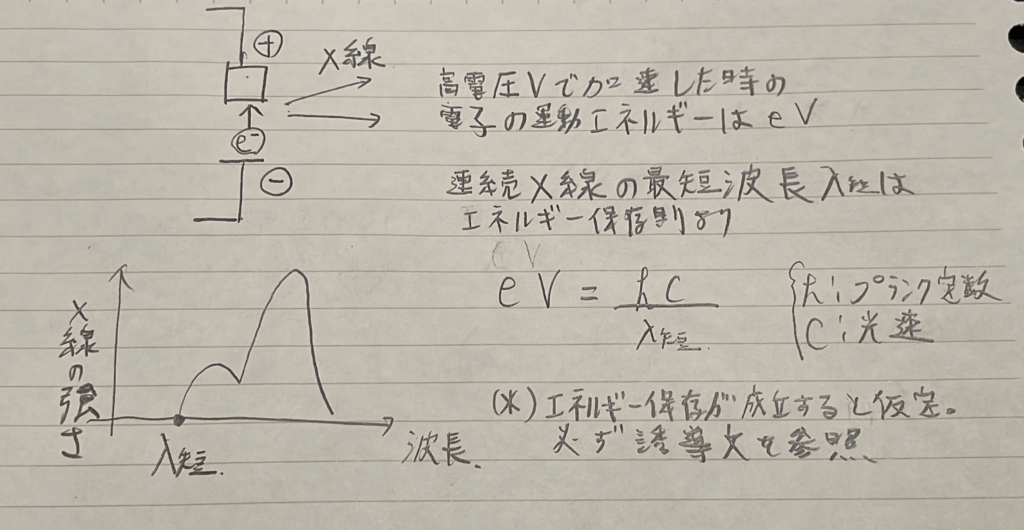 ⊕
X線
e⁻
⊖
高電圧Vで加速した時の
電子の運動エネルギーはeV
連続X線の最短波長λ短は
エネルギー保存則より
eV
eV = hc/λ短
h:プランク定数
C:光速
X線の強さ
λ短
波長
(※)エネルギー保存が成立すると仮定。
必ず誘導文を参照